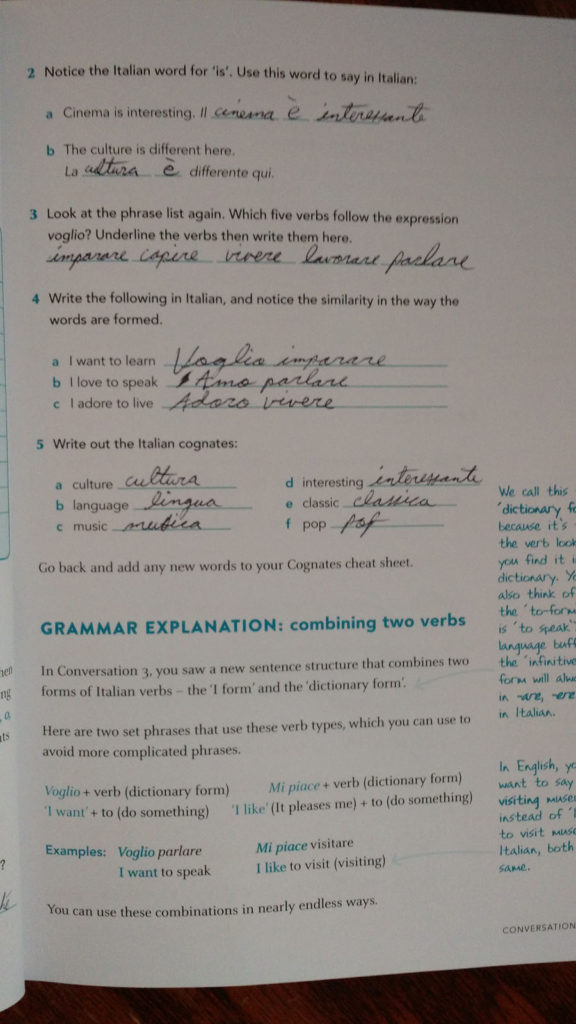 2 Notice the Italian word for 'is'. Use this word to say in Italian:
a Cinema is interesting. Il cinema è interessante
b The culture is different here.
La cultura è differente qui.
3 Look at the phrase list again. Which five verbs follow the expression
voglio? Underline the verbs then write them here.
imparare capire vivere lavorare parlare
4 Write the following in Italian, and notice the similarity in the way the
words are formed.
a I want to learn Voglio imparare
b I love to speak Amo parlare
c I adore to live Adoro vivere
5 Write out the Italian cognates:
a culture cultura d interesting interessante
b language lingua e classic classica
c music musica f pop pop
Go back and add any new words to your Cognates cheat sheet.
We call this
'dictionary fo
because it's
the verb look
you find it i
dictionary. Yo
also think of
the 'to-form
is 'to speak'
language buff
the 'infinitive
form will alwa
in -are, -ere
in Italian.
GRAMMAR EXPLANATION: combining two verbs
In Conversation 3, you saw a new sentence structure that combines two
forms of Italian verbs – the 'I form' and the 'dictionary form'.
Here are two set phrases that use these verb types, which you can use to
avoid more complicated phrases.
Voglio + verb (dictionary form) Mi piace + verb (dictionary form)
'I want' + to (do something) 'I like' (It pleases me) + to (do something)
Examples: Voglio parlare Mi piace visitare
I want to speak I like to visit (visiting)
You can use these combinations in nearly endless ways.
In English, yo
want to say
visiting museu
instead of 'I
to visit muse
Italian, both
same.
CONVERSATION
hen
ng
, o,
ts
?